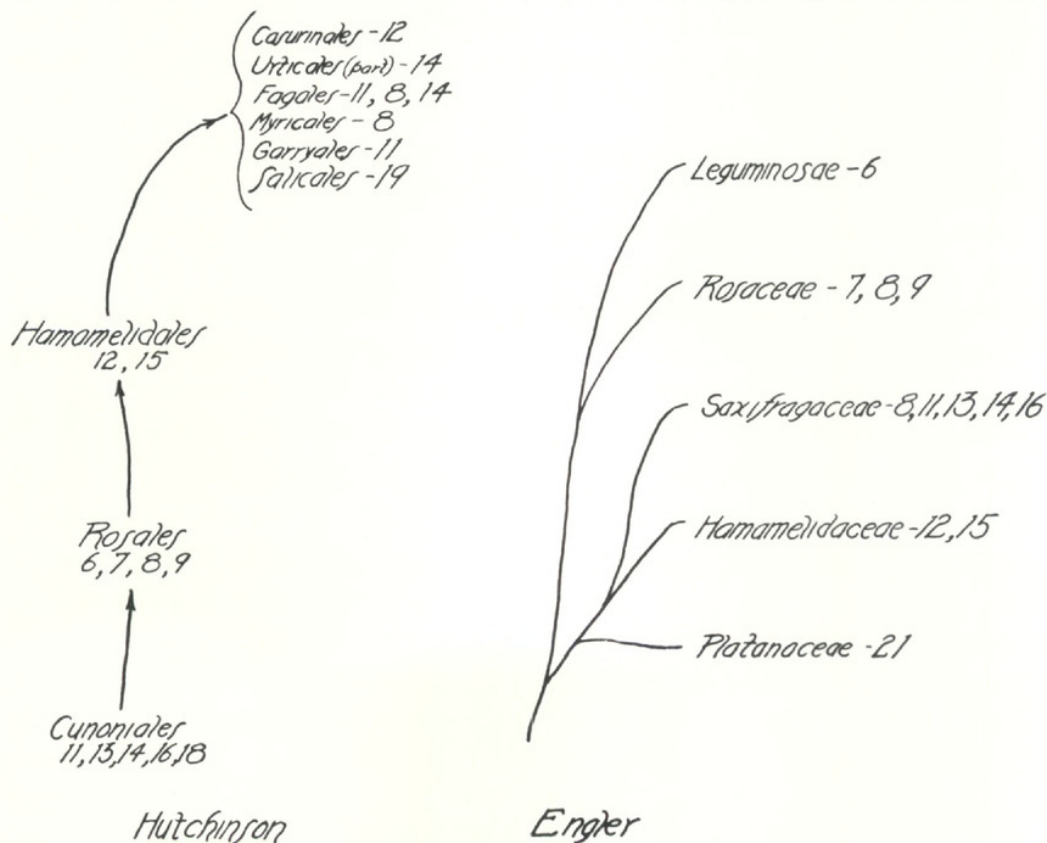 Casurinales - 12
Urticales (part) - 14
Fagales - 11, 8, 14
Myricales - 8
Garryales - 11
Salicales - 19
Hamamelidales
12, 15
Rosales
6, 7, 8, 9
Cunoniales
11, 13, 14, 16, 18
Hutchinson
Leguminosae - 6
Rosaceae - 7, 8, 9
Saxifragaceae - 8, 11, 13, 14, 16
Hamamelidaceae - 12, 15
Platanaceae - 21
Engler